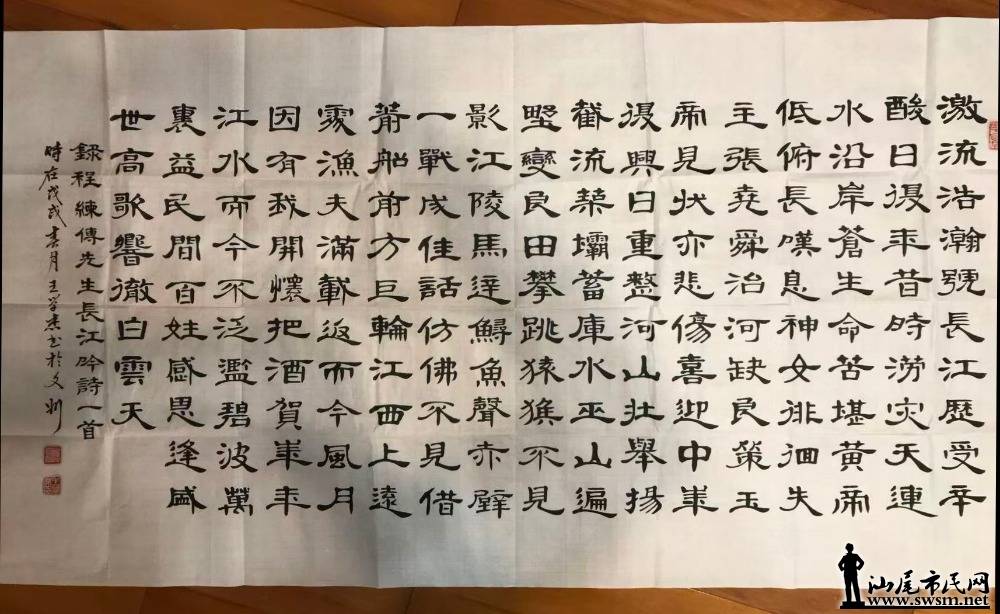 激流浩瀚號長江歷受辛
酸日復年昔時澇灾天連
水沿岸蒼生命苦堪黃帝
低俯長嘆息神女徘徊失
主張堯舜治河缺良策玉
帝見狀亦悲傷喜迎中華
復興日重整河山壯舉揚
截流築壩蓄庫水巫山遍
壑變良田攀跳猿猴不見
影江陵馬達鱘魚聲赤壁
一戰成佳話仿佛不見借
箭船前方巨輪江西上遠
處漁夫滿載返而今風月
因有我開懷把酒賀華年
江水而今不泛濫碧波萬
裏益民間百姓感恩逢盛
世高歌響徹白雲天
錄程練傳先生長江吟詩一首
時在戊戌春月王學書於文州
汕尾市民网
www.swsm.net